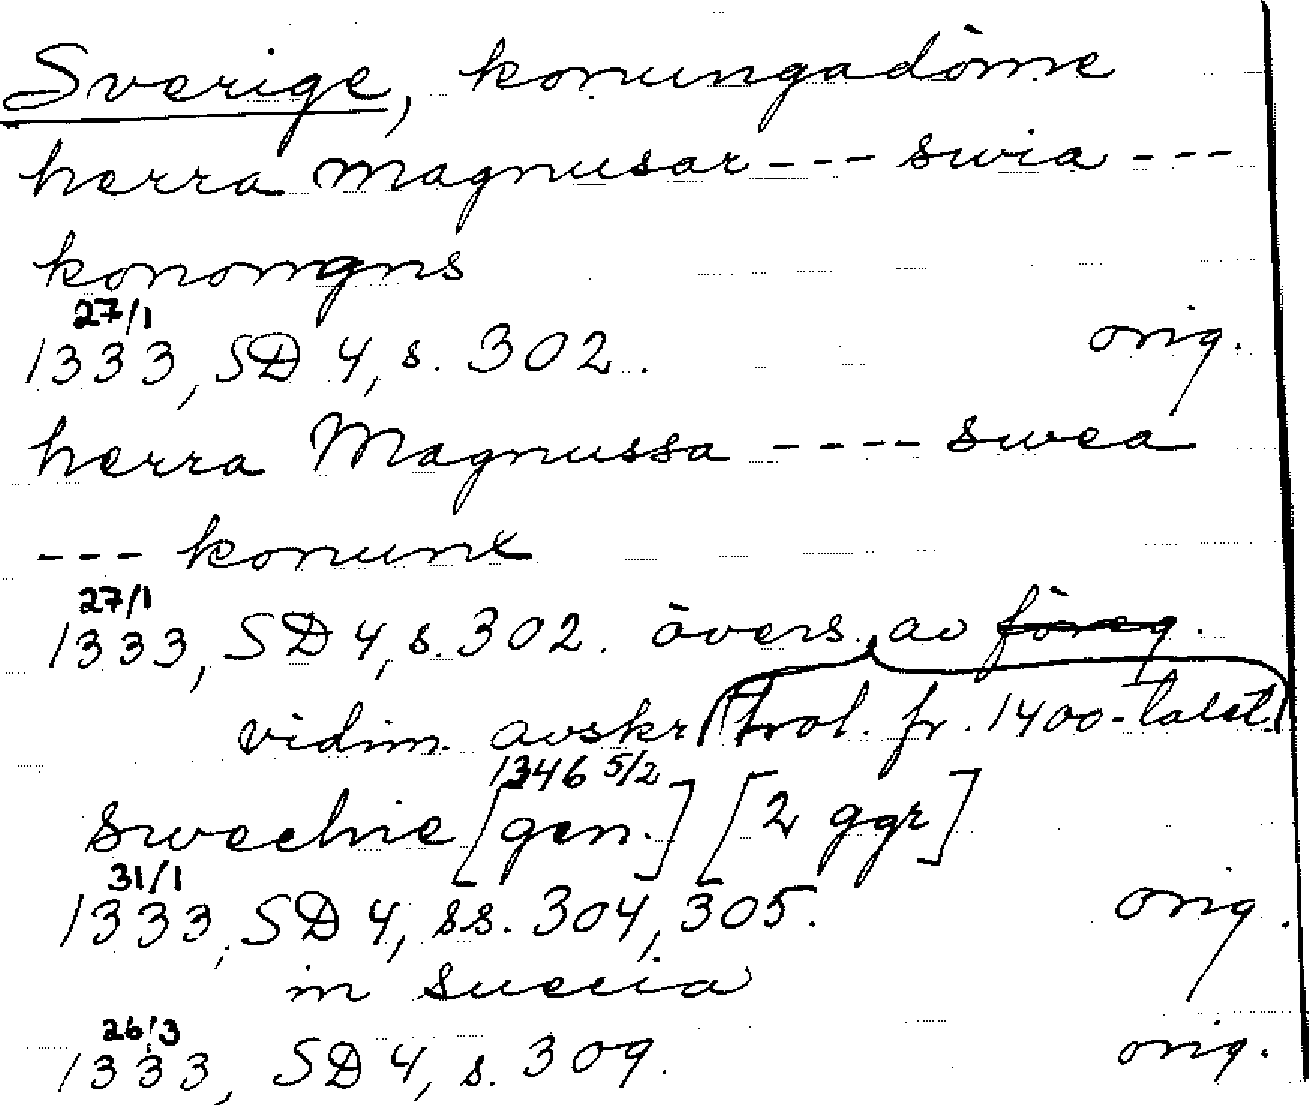 Sverige, konungadöme
herra magnusar --- swia ---
konomgns
27/1
1333, SD 4, s. 302. orig.
herra Magnussa ---- swea
--- konunx
27/1
1333, SD 4, s. 302. övers. av föreg.
vidim. avskr. (trol. fr. 1400-talet)
1346 5/2
swechie [gen.] [2 ggr]
31/1
1333, SD 4, ss. 304, 305. orig.
in suecia
26/3
1333, SD 4, s. 309. orig.